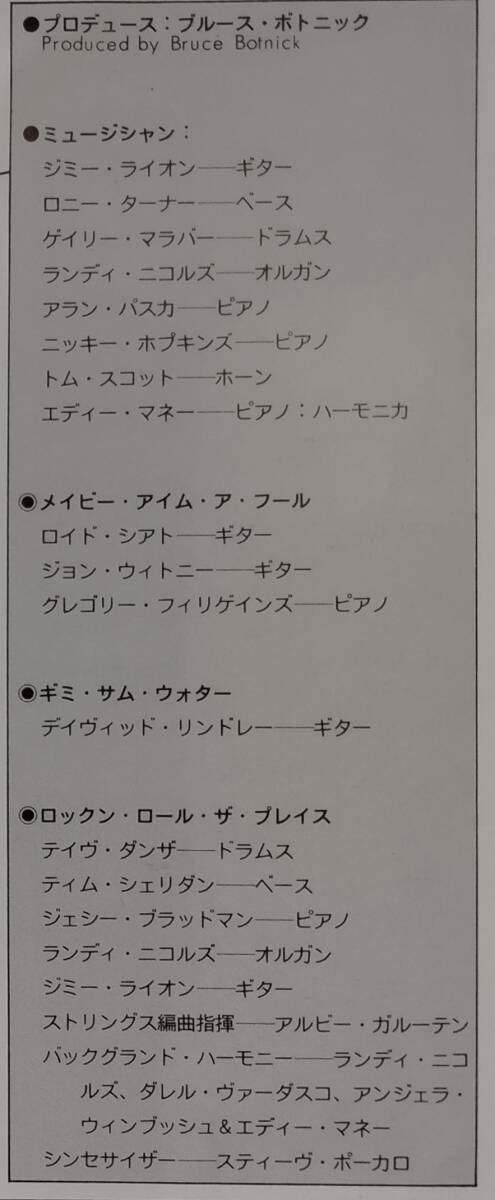 ●プロデュース：ブルース・ボトニック
Produced by Bruce Botnick
●ミュージシャン：
ジミー・ライオン──ギター
ロニー・ターナー──ベース
ゲイリー・マラバー──ドラムス
ランディ・ニコルズ──オルガン
アラン・パスカ──ピアノ
ニッキー・ホプキンズ──ピアノ
トム・スコット──ホーン
エディー・マネー──ピアノ：ハーモニカ
◉メイビー・アイム・ア・フール
ロイド・シアト──ギター
ジョン・ウィトニー──ギター
グレゴリー・フィリゲインズ──ピアノ
◉ギミ・サム・ウォター
デイヴィッド・リンドレー──ギター
◉ロックン・ロール・ザ・プレイス
テイヴ・ダンザ──ドラムス
ティム・シェリダン──ベース
ジェシー・ブラッドマン──ピアノ
ランディ・ニコルズ──オルガン
ジミー・ライオン──ギター
ストリングス編曲指揮──アルビー・ガルーテン
バックグランド・ハーモニー──ランディ・ニコ
ルズ、ダレル・ヴァーダスコ、アンジェラ・
ウィンブッシュ＆エディー・マネー
シンセサイザー──スティーヴ・ポーカロ